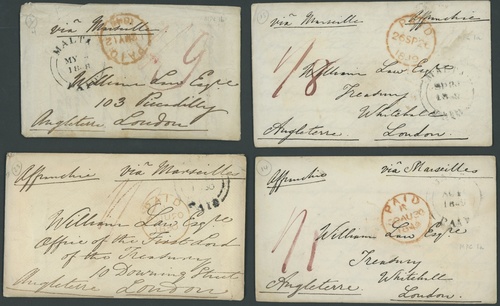 via Marseille
MALTA
PAID
William Law Esqre
103 Piccadilly
Angleterre London
via Marseille
Affranchie
PAID
1/8
William Law Esqre
Treasury
Whitehall
Angleterre
London
Affranchie
via Marseilles
PAID
PAID
William Law Esqre
Office of the First Lord
of the Treasury
10 Downing Street
Angleterre London
Affranchie
via Marseilles
PAID
20 AU 20
1849
PAID
William Law Esqre
Treasury
Whitehall
Angleterre
London